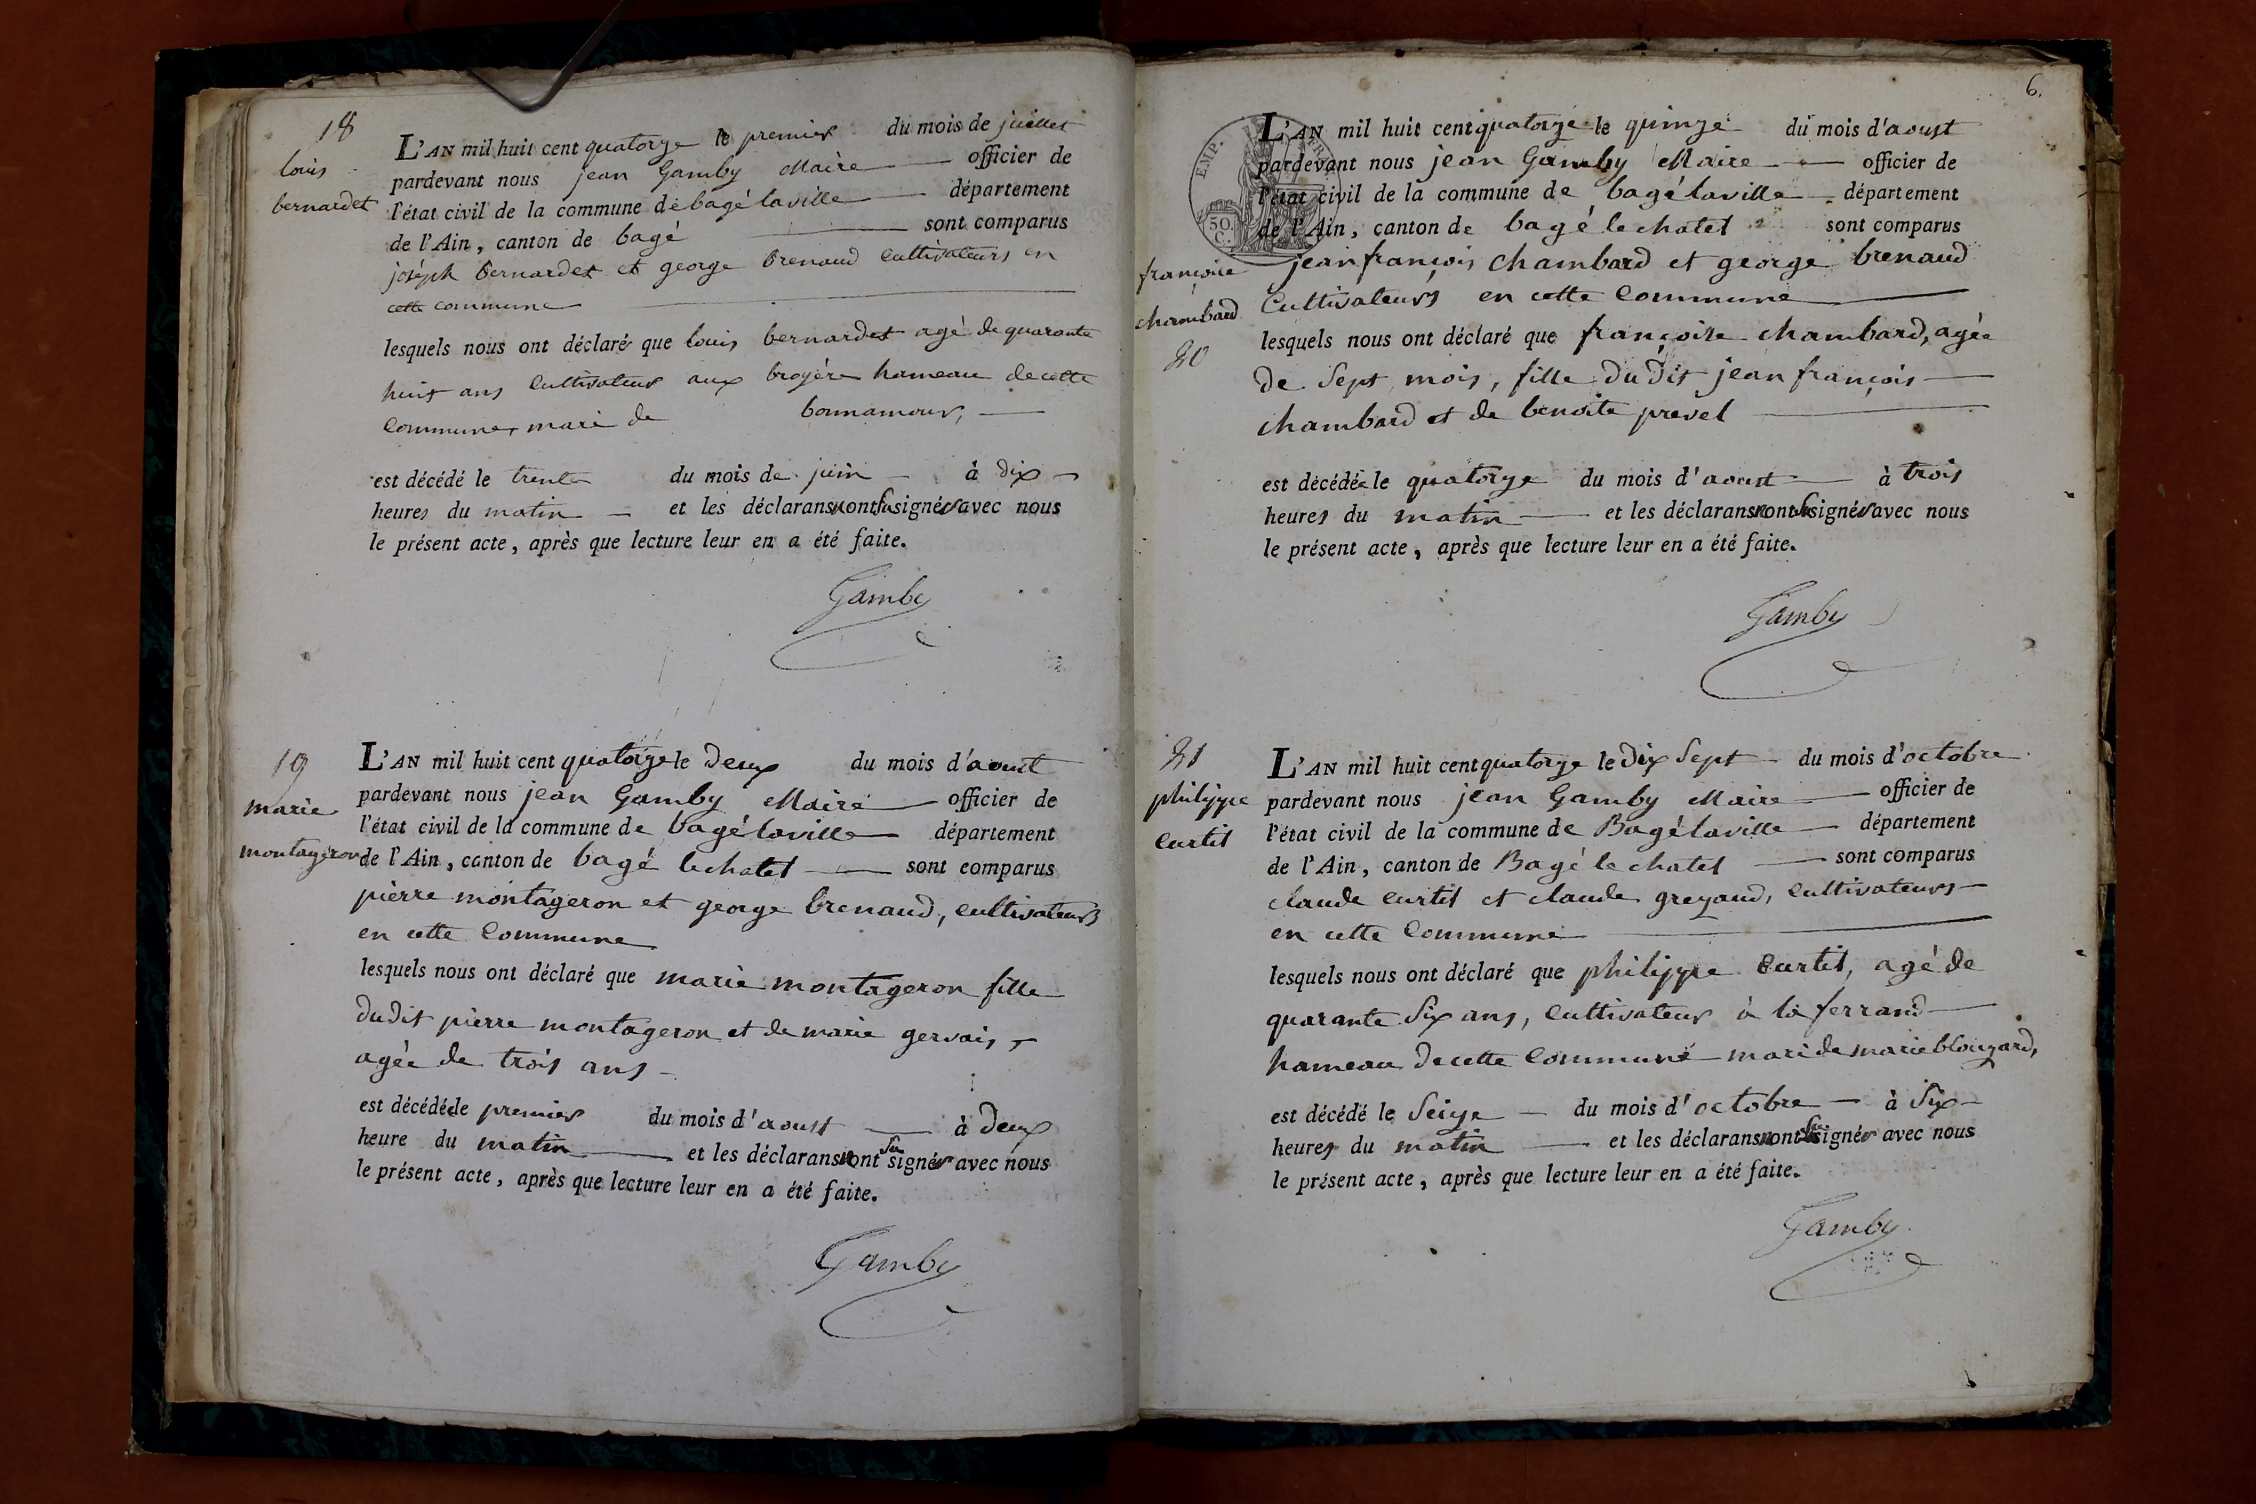 18
louis
bernardet
L'AN mil huit cent quatorze le premier du mois de juillet
pardevant nous jean Gamby Maire officier de
l'état civil de la commune de bagé laville département
de l'Ain, canton de bagé sont comparus
joséph bernardet et george brenaud cultivateurs en
cette commune
lesquels nous ont déclaré que louis bernardet agé de quarante
huit ans cultivateur aux broyère hameau de cette
commune, mari de bonnamour,
est décédé le trente du mois de juin à dix
heures du matin et les déclarans nont su signér avec nous
le présent acte, après que lecture leur en a été faite.
Gamby
19
marie
montageron
L'AN mil huit cent quatorze le deux du mois d'aoust
pardevant nous jean Gamby Maire officier de
l'état civil de la commune de bagé laville département
de l'Ain, canton de bagé le chatel sont comparus
pièrre montageron et george brenaud, cultivateurs
en cette commune
lesquels nous ont déclaré que marie montageron fille
dudit pièrre montageron et de marie gervais,
agée de trois ans
est décédée le premier du mois d'aoust à deux
heure du matin et les déclarans nont su signér avec nous
le présent acte, après que lecture leur en a été faite.
Gamby
6.
EMP.
50
C.
françoise
chambard
20
L'AN mil huit cent quatorze le quinze du mois d'aoust
pardevant nous jean Gamby Maire officier de
l'état civil de la commune de bagé laville département
de l'Ain, canton de bagé le chatel sont comparus
jean françois chambard et george brenaud
cultivateurs en cette commune
lesquels nous ont déclaré que françoise chambard, agée
de sept mois, fille dudit jean françois
chambard et de benoite prevel
est décédée le quatorze du mois d'aoust à trois
heures du matin et les déclarans nont su signér avec nous
le présent acte, après que lecture leur en a été faite.
Gamby
21
philippe
curtil
L'AN mil huit cent quatorze le dix sept du mois d'octobre
pardevant nous jean Gamby Maire officier de
l'état civil de la commune de Bagé laville département
de l'Ain, canton de Bagé le chatel sont comparus
claude curtil et claude greyaud, cultivateurs
en cette commune
lesquels nous ont déclaré que philippe curtil, agé de
quarante six ans, cultivateur à la ferrand
hameau de cette commune mari de marie blouzard,
est décédé le seize du mois d'octobre à six
heures du matin et les déclarans nont su signér avec nous
le présent acte, après que lecture leur en a été faite.
Gamby